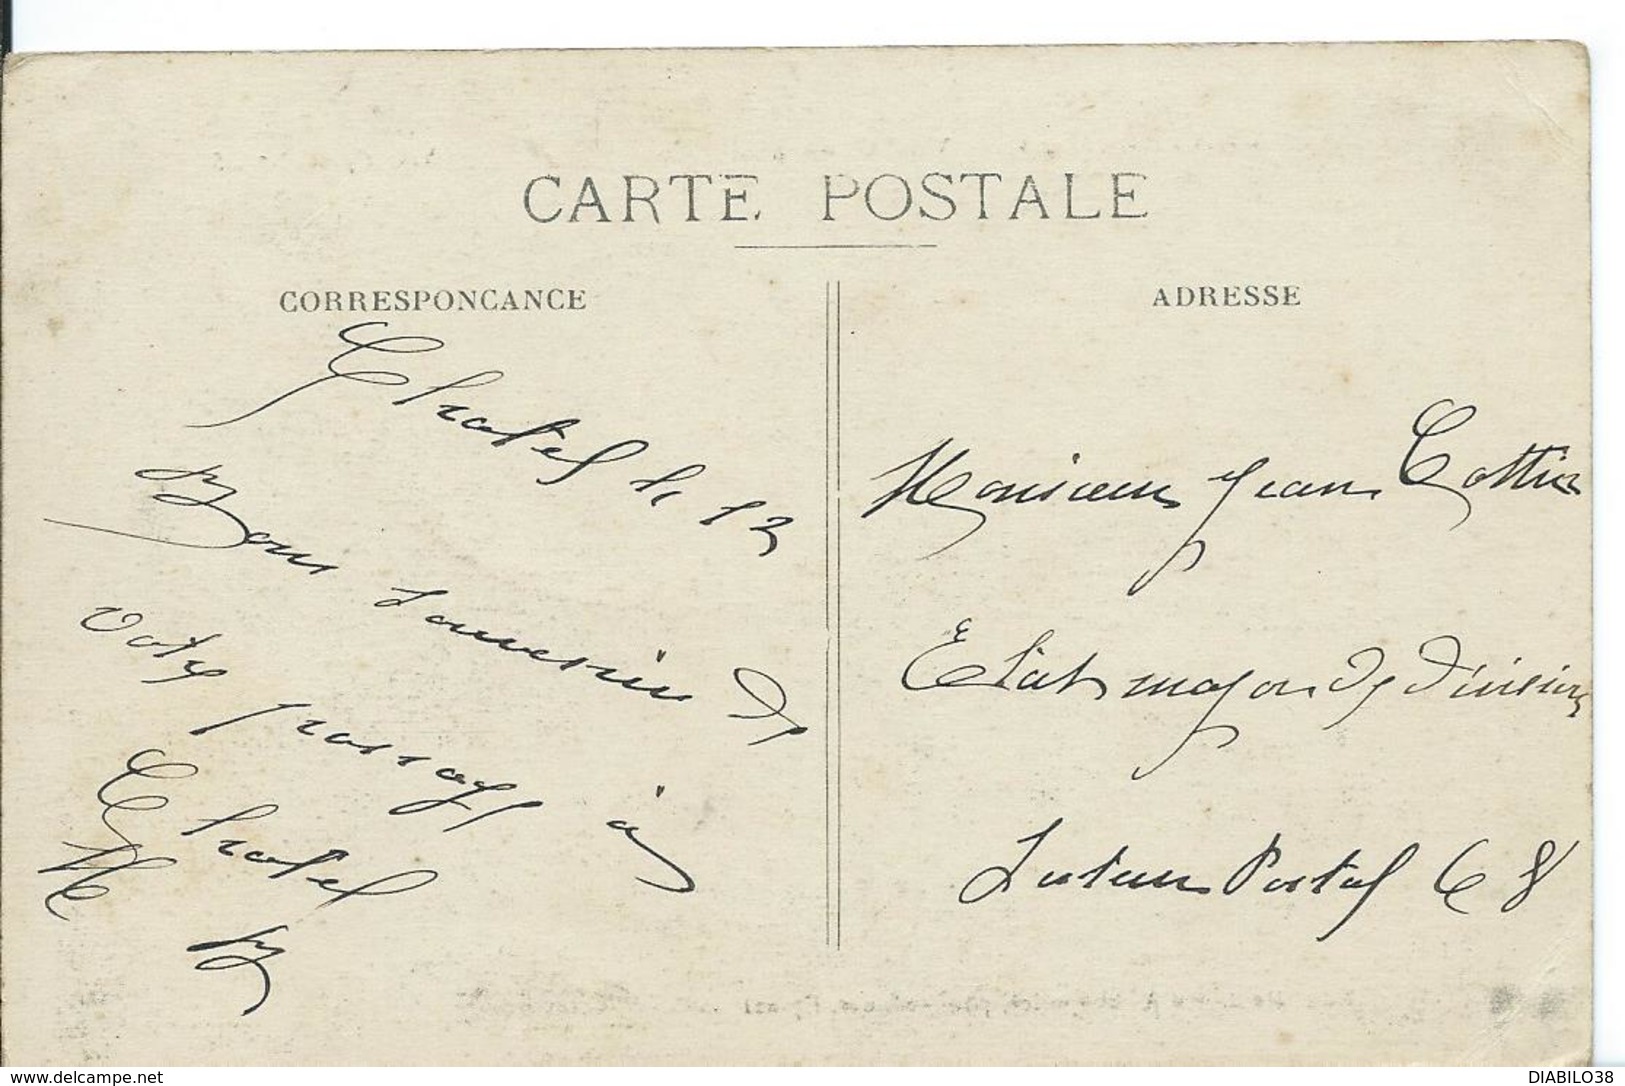 CARTE POSTALE
CORRESPONCANCE
ADRESSE
Chatel le 12
Bon souvenir de
votre passage à
Chatel
M B
Monsieur Jean Cottin
Etat major de division
Secteur Postal 68
www.delcampe.net
DIABILO38